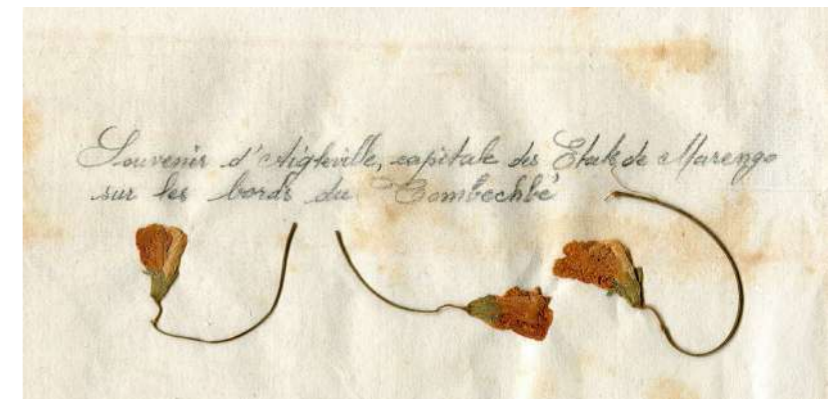 Souvenir d'Aigleville, capitale des Etats de Marengo
sur les bords du Tombechbé